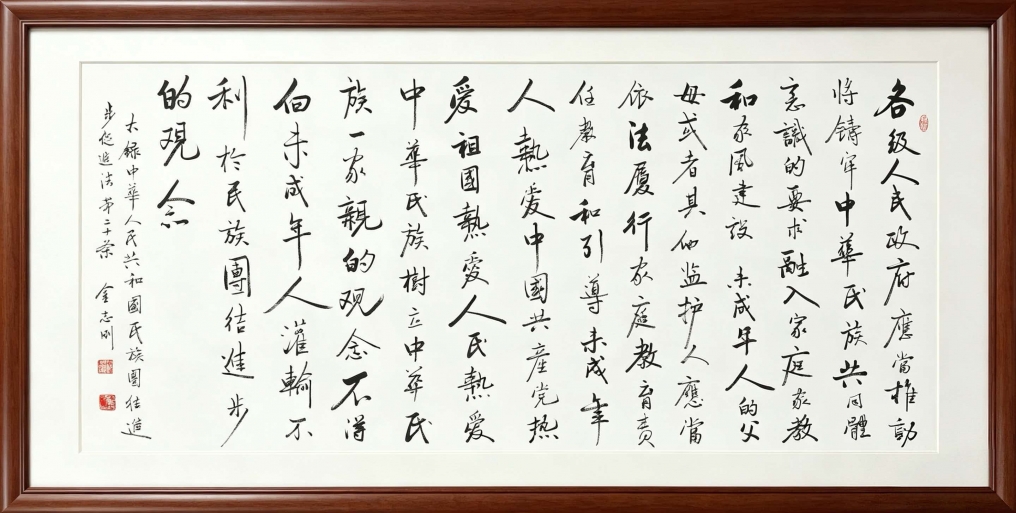 各级人民政府應當推動
将鑄牢中華民族共同體
意識的要求融入家庭家教
和家風建設 未成年人的父
母或者其他监护人應當
依法履行家庭教育責
任教育和引導未成年
人熱愛中國共産党热
愛祖國熱愛人民熱愛
中華民族樹立中華民
族一家親的观念不得
向未成年人灌輸不
利於民族團结進步
的观念
大録中華人民共和國民族團结進
步促進法第二十条 金志刚